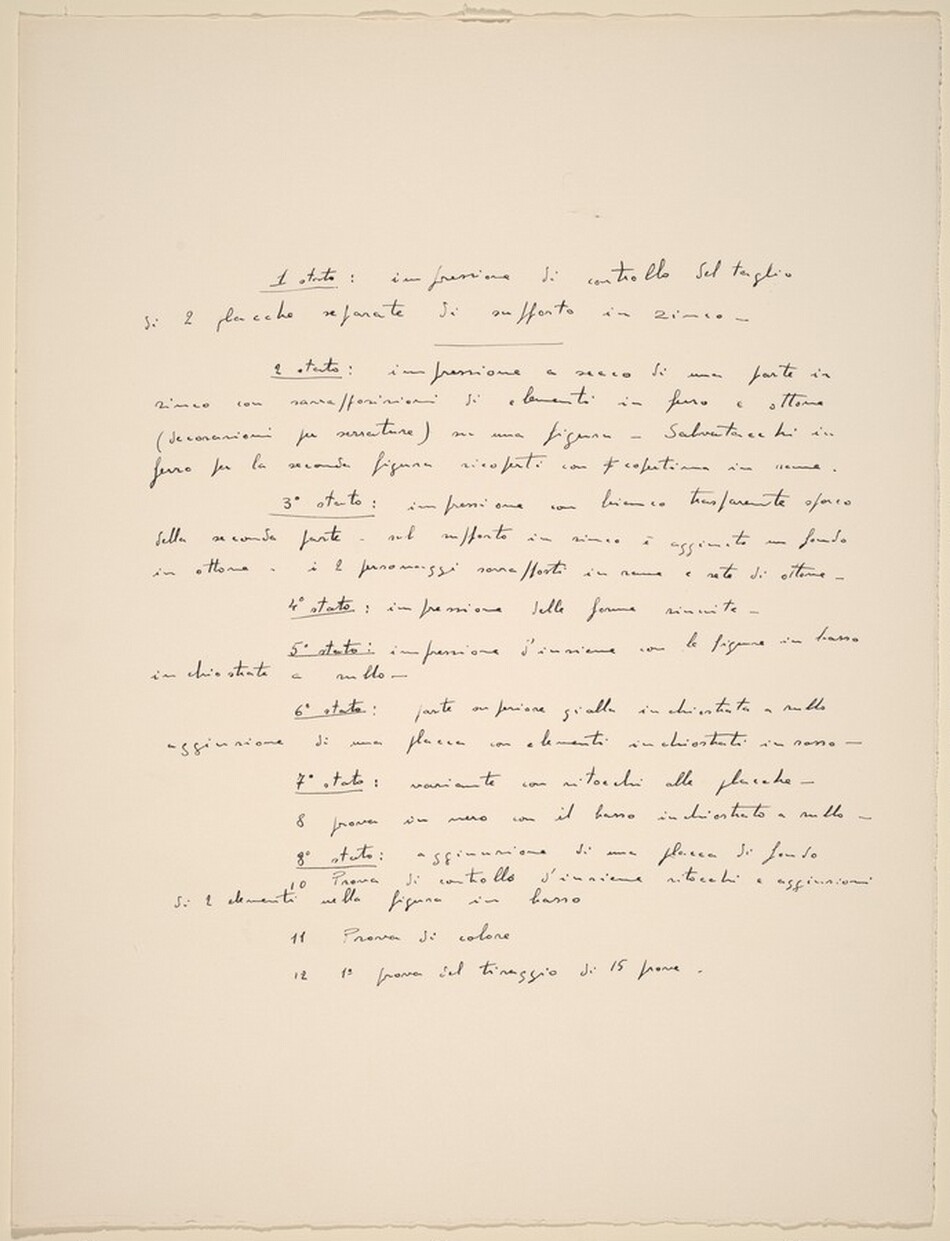 1 stato : impressione di controllo del taglio
di 2 placche separate di supporto in zinco —
2 stato : impressione a secco di una parte in
zinco con sovrapposizioni di elementi in ferro e ottone
(decorazioni per serrature) su una figura — Salvatacchi in
ferro per la seconda figura ricoperti con copertina in rame .
3° stato : impressione con bianco trasparente sporco
della seconda parte - sul supporto in zinco è aggiunto un fondo
in ottone - i 2 personaggi sovrapposti in rame e rete di ottone —
4° stato : impressione delle forme riunite —
5° stato : impressione d'insieme con le figure in basso
inchiostrate a rullo —
6° stato : parte superiore gialla inchiostrata a rullo
aggiunzione di una placca con elementi inchiostrati in rosso —
7° stato : variante con ritocchi alle placche —
8 prova in nero con il basso inchiostrato a rullo —
8° stato : aggiunzione di una placca di fondo
10 Prova di controllo d'insieme ritocchi e aggiunzioni
di 2 elementi nella figura in basso
11 Prova di colore
12 1a prova del tiraggio di 15 prove .